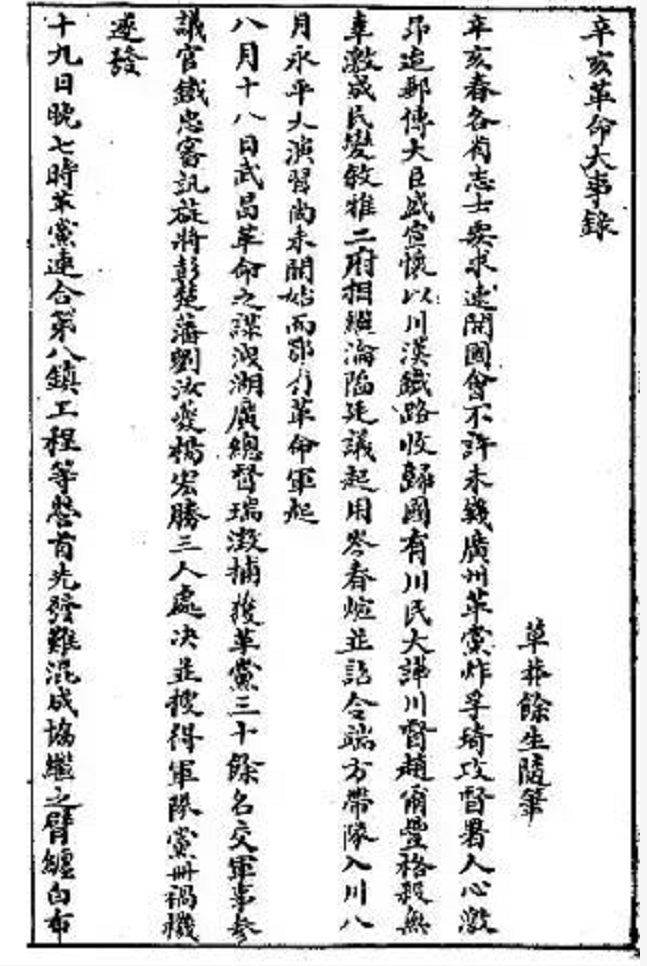 辛亥革命大事錄
草莽餘生隨筆
辛亥春各省志士要求速開國會不許未幾廣州革黨炸孚琦攻督署人心激
昂迨郵傳大臣盛宣懷以川漢鐵路收歸國有川民大譁川督趙爾豐格殺無
辜激成民變敘雅二府相繼淪陷廷議起用岑春煊並詔令端方帶隊入川八
月永平大演習尚未開始而鄂有革命軍起
八月十八日武昌革命之謀洩湖廣總督瑞澂捕獲革黨三十餘名交軍事參
議官鐵忠審訊旋將彭楚藩劉汝夔楊宏勝三人處决並搜得軍隊黨冊禍機
遂發
十九日晚七時革黨連合第八鎮工程等營首先發難混成協繼之臂纏白布